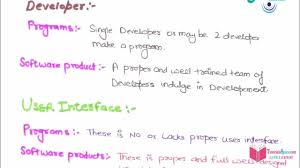 Developer:-
Programs:- Single Developer or may be 2 developer
make a program.
Software product:- A proper and well trained team of
Developers indulge in Developement.
User Interface:-
Programs:- There is No or Lacks proper uses interface.
Software products:- There is proper and full well designed